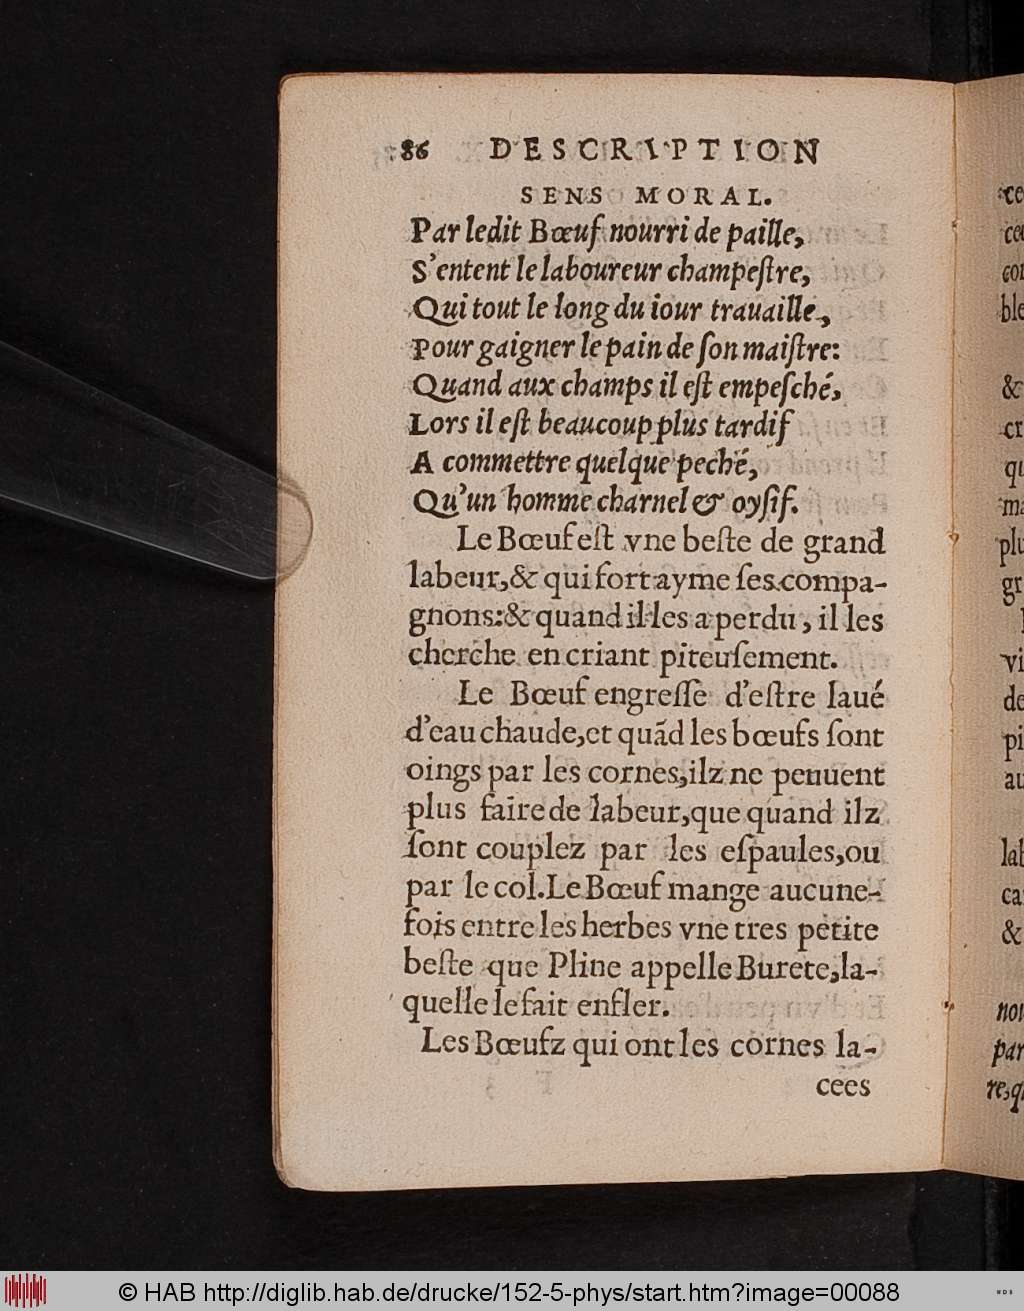 86 DESCRIPTION
SENS MORAL.
Par ledit Bœuf nourri de paille,
S'entent le laboureur champeſtre,
Qui tout le long du iour trauaille,
Pour gaigner le pain de ſon maiſtre:
Quand aux champs il eſt empeſché,
Lors il eſt beaucoup plus tardif
A commettre quelque peché,
Qu'un homme charnel & oyſif.
Le Bœuf eſt vne beſte de grand
labeur, & qui fort ayme ſes compa-
gnons: & quand il les a perdu, il les
cherche en criant piteuſement.
Le Bœuf engreſſe d'eſtre laué
d'eau chaude, et quãd les bœufs ſont
oings par les cornes, ilz ne peuuent
plus faire de labeur, que quand ilz
ſont couplez par les eſpaules, ou
par le col. Le Bœuf mange aucune-
fois entre les herbes vne tres petite
beſte que Pline appelle Burete, la-
quelle le fait enfler.
Les Bœufz qui ont les cornes la-
cees
ce
con
ble
&
cr
qu
ma
plu
gr
vi
de
pi
au
lab
ca
&
nou
par
re, q
© HAB http://diglib.hab.de/drucke/152-5-phys/start.htm?image=00088